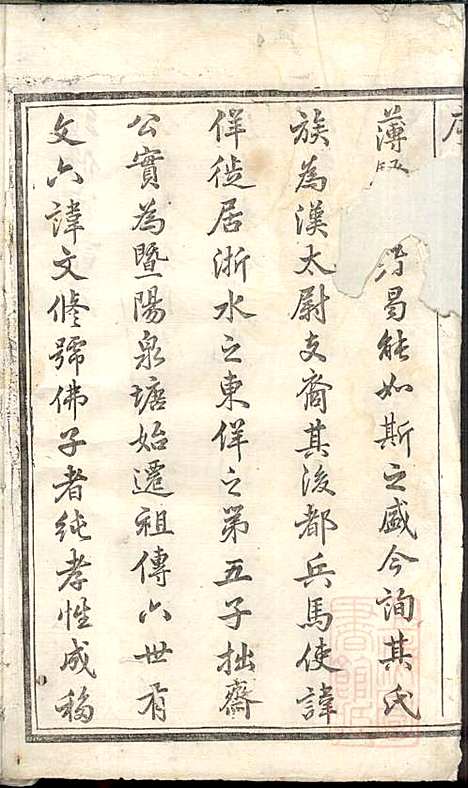 序
薄
曷能如斯之盛今詢其氏
族為漢太尉支裔其後都兵馬使諱
佯徙居浙水之東佯之第五子拙齋
公實為暨陽泉塘始遷祖傳六世有
文六諱文修號佛子者純孝性成稱